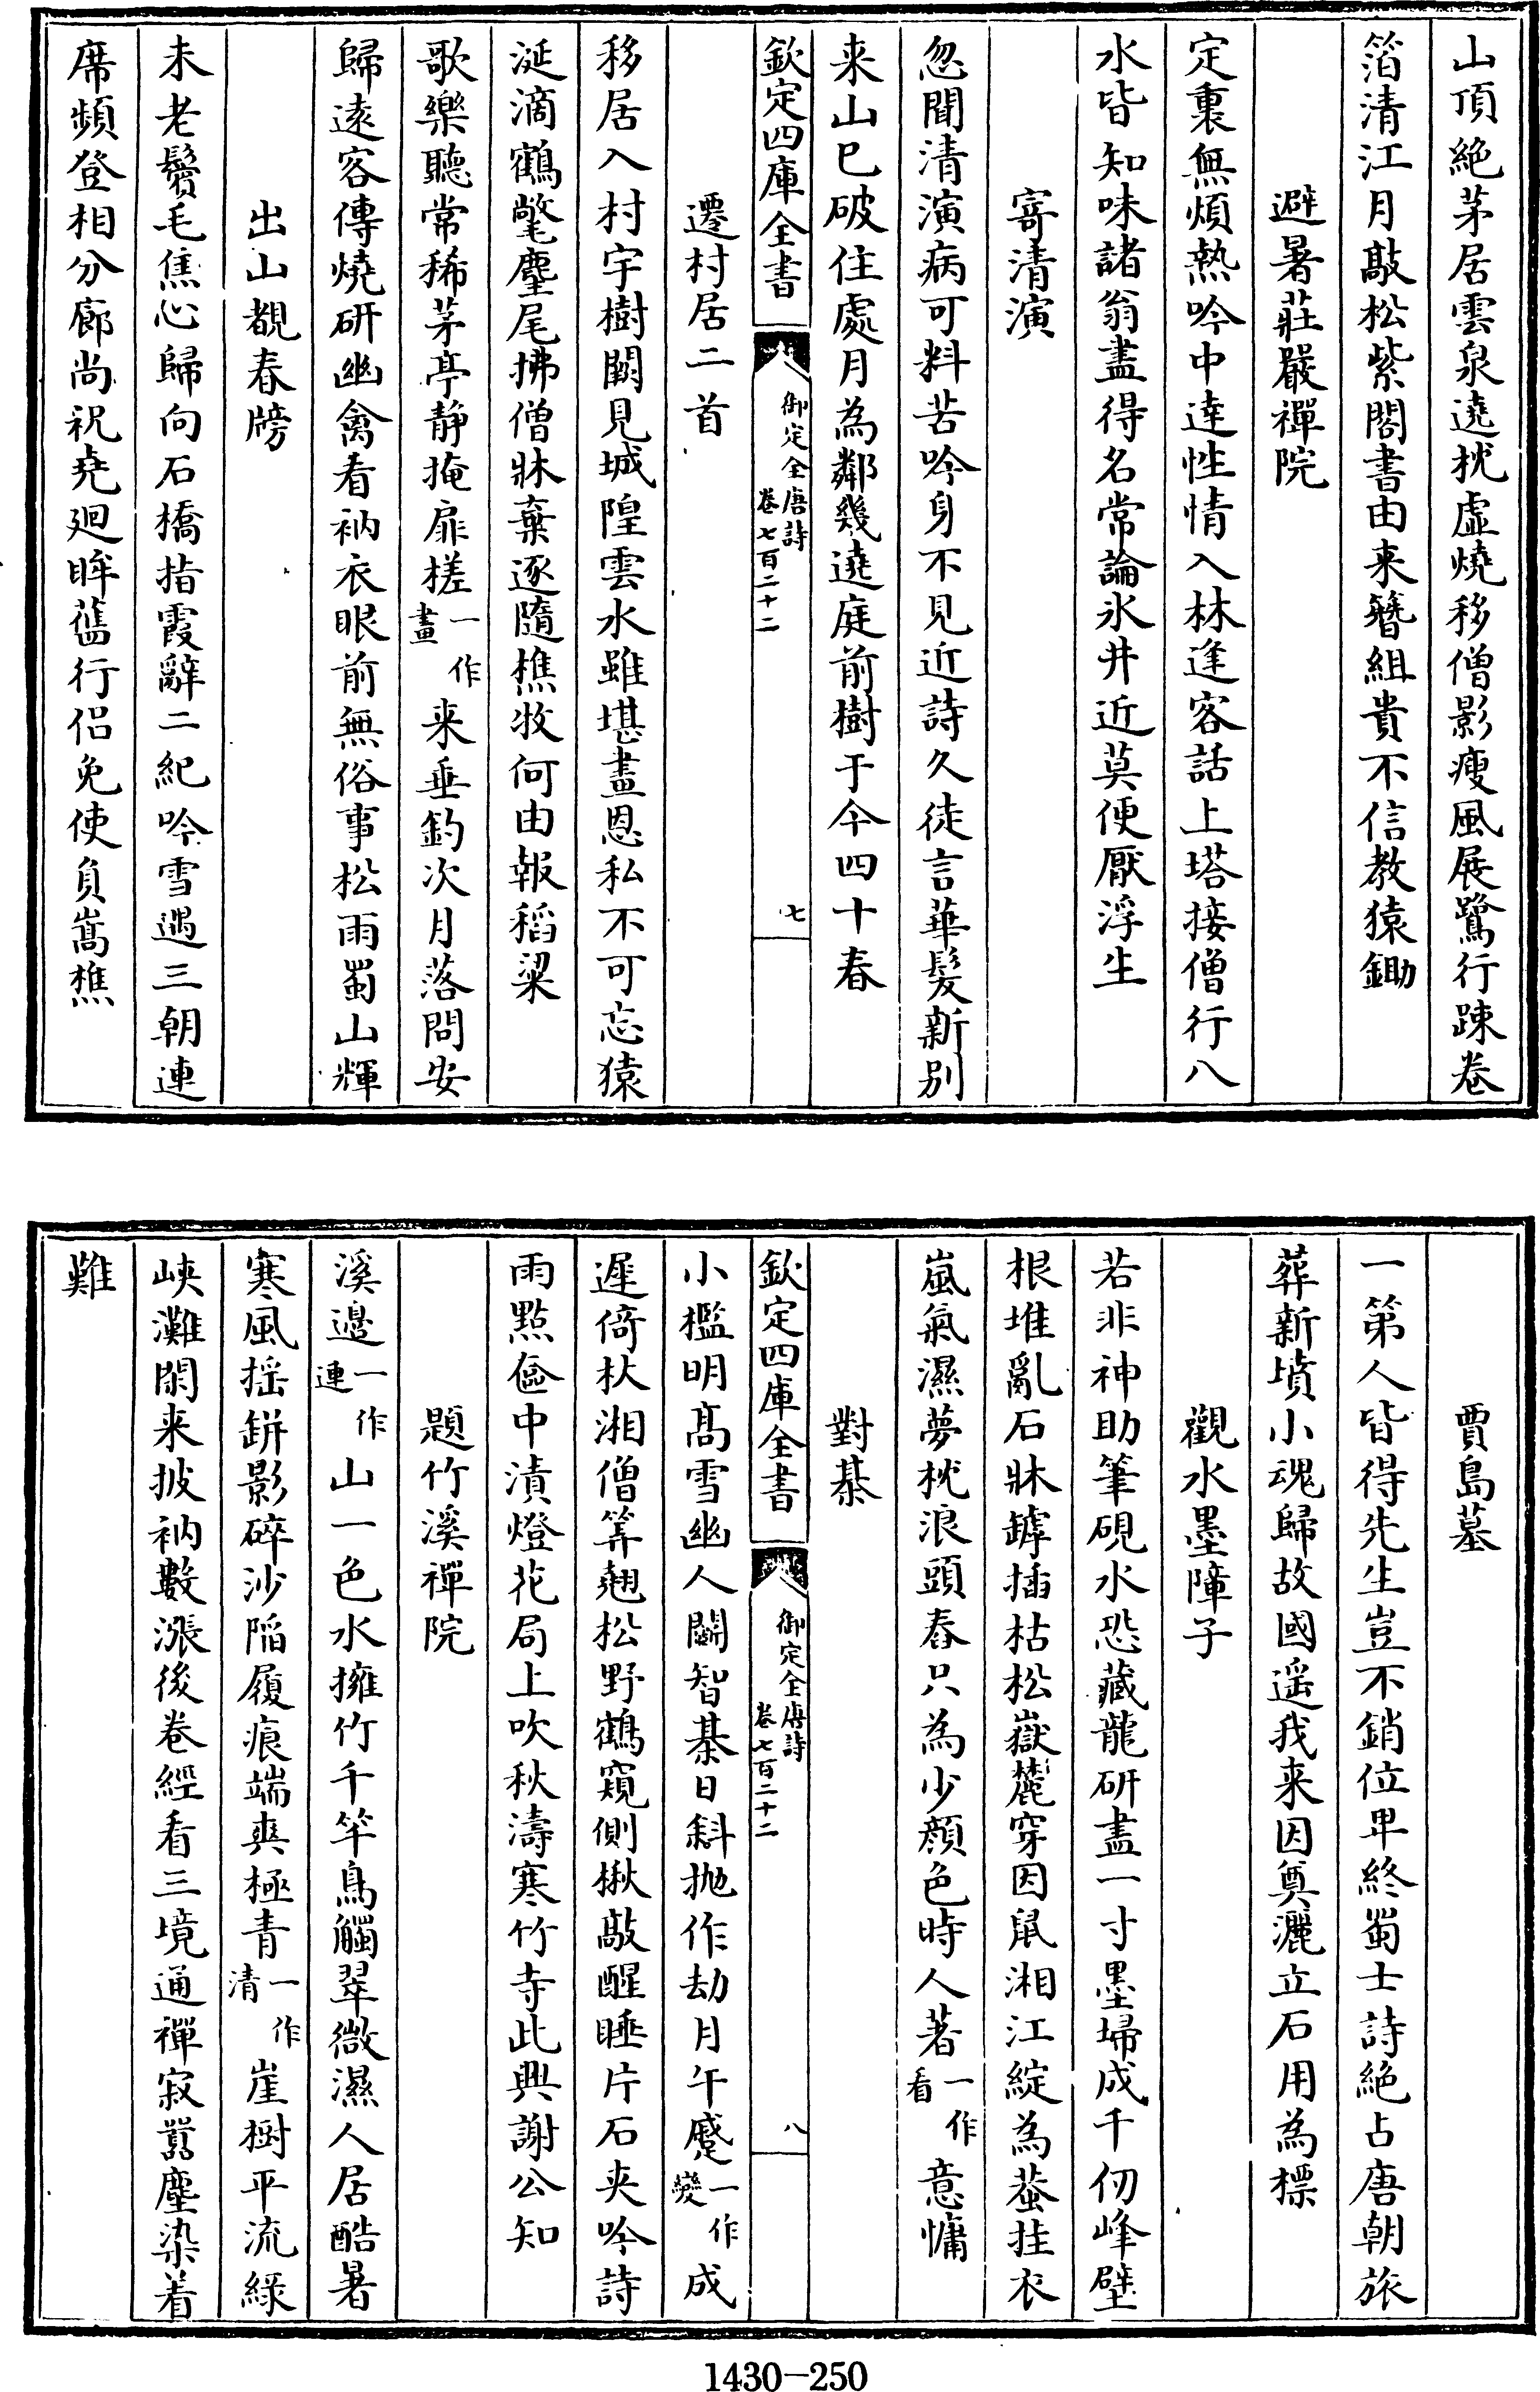 山頂絶茅居雲泉遶枕虚燒移僧影瘦風展鷺行踈卷
箔清江月敲松紫閣書由来簪組貴不信教猿鋤
避暑莊嚴禪院
定裏無煩熱吟中達性情入林逢客話上塔接僧行八
水皆知味諸翁盡得名常論氷井近莫便厭浮生
寄清演
忽聞清演病可料苦吟身不見近詩久徒言華髮新别
来山已破住處月為鄰幾遶庭前樹于今四十春
欽定四庫全書
御定全唐詩
卷七百二十二
七
遷村居二首
移居入村宇樹闕見城隍雲水雖堪畫恩私不可忘猿
涎滴鶴氅麈尾拂僧牀棄逐隨樵牧何由報稻粱
歌樂聽常稀茅亭静掩扉槎一作畫来垂釣次月落問安
歸逺客傳燒研幽禽看衲衣眼前無俗事松雨蜀山輝
出山覩春牓
未老鬢毛焦心歸向石橋指霞辭二紀吟雪遇三朝連
席頻登相分廊尚祝堯廻眸舊行侣免使負嵩樵
賈島墓
一第人皆得先生豈不銷位卑終蜀士詩絶占唐朝旅
葬新墳小魂歸故國遥我来因奠灑立石用為標
觀水墨障子
若非神助筆硯水恐藏龍研盡一寸墨埽成千仞峰壁
根堆亂石牀罅插枯松嶽麓穿因鼠湘江綻為蛬挂衣
嵐氣濕夢枕浪頭舂只為少顔色時人著一作看意慵
對棊
欽定四庫全書
御定全唐詩
卷七百二十二
八
小檻明髙雪幽人鬭智棊日斜抛作劫月午蹙一作變成
遲倚杖湘僧筭翹松野鶴窺側楸敲醒睡片石夾吟詩
雨㸃奩中漬燈花局上吹秋濤寒竹寺此興謝公知
題竹溪禪院
溪邉一作連山一色水擁竹千竿鳥觸翠微濕人居酷暑
寒風揺缾影碎沙陷履痕端爽極青一作清崖樹平流緑
峽灘閑来披衲數漲後卷經看三境通禪寂囂塵染着
難
1430—250